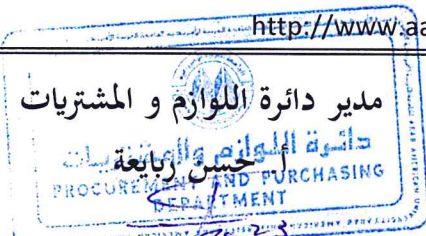 http://www.aa
مدير دائرة اللوازم و المشتريات
دائرة اللوازم والمشتريات
أ. حسن ربايعة
PROCUREMENT AND PURCHASING
DEPARTMENT